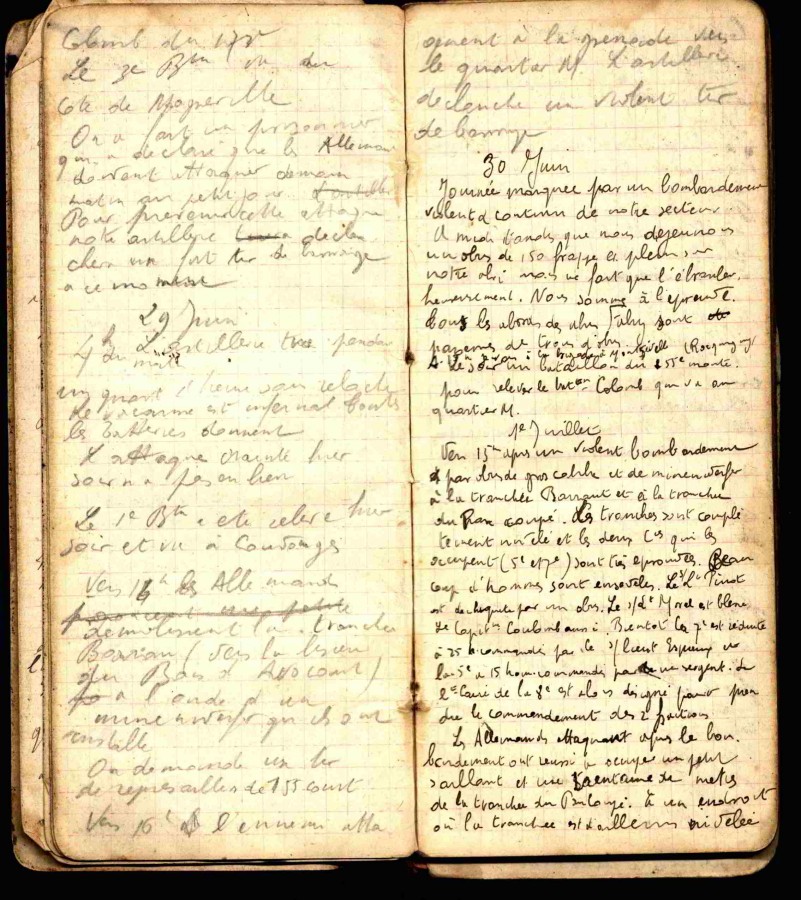 Colomb du 173e
Le 3e Btn va au
Cote de
On a fait un prisonnier
qui a declaré que les Allemands
devraient attaquer demain
matin au petit jour.
Pour prevenir cette attaque
notre artillerie declan
chera un fort tir de barrage
a ce moment
29 Juin
4h du matin L'artillerie pendant
un quart d'heure sans relache
le vacarme est infernal toutes
les batteries donnent
L'attaque crainte hier
soir n'a pas eu lieu
Le 1e Btn a ete releve hier
soir et va à
Vers 14h les Allemands
demolissent la tranchée
(vers la lisiere
du Bois d'Avocourt)
à l'aide d'un
minenwerfer qu'ils ont
installe
On demande un tir
de represailles de 155 court
Vers 16h l'ennemi atta
quent à la grenade vers
le quartier M. L'artillerie
declanche un violent tir
de barrage
30 Juin
Journée marquee par un bombardement
violent et continu de notre secteur.
A midi tandis que nous dejeunons
un obus de 150 frappe en plein sur
notre abri mais ne fait que l'ébranler.
heureusement. Nous sommes à l'epreuve.
Tous les abords des abris sont
parsemes de trous d'obus.
Le soir un bataillon du 155e monte.
pour relever le baton Colomb qui va au
quartier M.
1e Juillet
Vers 15h apres un violent bombardement
par obus de gros calibre et de minenwerfer
à la tranchée et à la tranchée
du coupé. Les tranchees sont comple
tement nivelé et les deux Cies qui les
occupent (5e et 7e) sont tres eprouvées. Beau
coup d'hommes sont ensevelis. Le S/Lt Pinot
est dechiqueté par un obus. Le s/Lt Morel est blessé
Le Capitne Coulomb aussi. Bientot la 7e est réduite
à 25 h commandés par le s/lieut
la 5e à 15 hom commandés par un sergent. Le
de la 8e est alors designé pour pren
dre le commandement des 2 fractions
Les Allemands attaquant apres le bom.
bardement ont reussi a occuper un petit
saillant et une trentaine de metres
de la tranchée du. à un endroit
où la tranchee est d'ailleurs nivelée